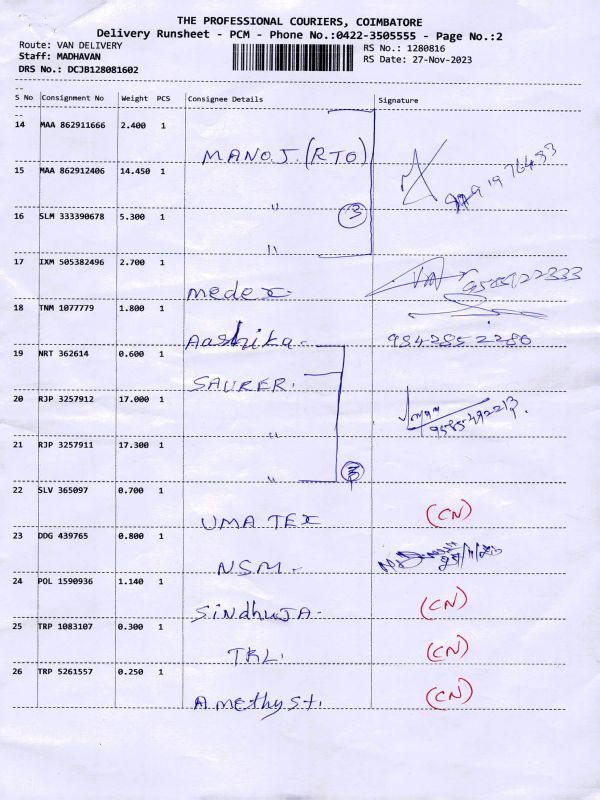 THE PROFESSIONAL COURIERS, COIMBATORE
Delivery Runsheet - PCM - Phone No.:0422-3505555 - Page No.:2
Route: VAN DELIVERY RS No.: 1280816
Staff: MADHAVAN RS Date: 27-Nov-2023
DRS No.: DCJB128081602
S No Consignment No Weight PCS Consignee Details Signature
14 MAA 862911666 2.400 1
MANO.J. (RTO)
15 MAA 862912406 14.450 1
"
16 SLM 333390678 5.300 1
3
"
17 IXM 505382496 2.700 1
medex
18 TNM 1077779 1.800 1
Aashika - 9842852280
19 NRT 362614 0.600 1
SAURER.
20 RJP 3257912 17.000 1
"
21 RJP 3257911 17.300 1
"
22 SLV 365097 0.700 1
UMA TEX (CN)
23 DDG 439765 0.800 1
NSM -
24 POL 1590936 1.140 1
SindhuJA - (CN)
25 TRP 1083107 0.300 1
TRL. (CN)
26 TRP 5261557 0.250 1
Amethyst. (CN)